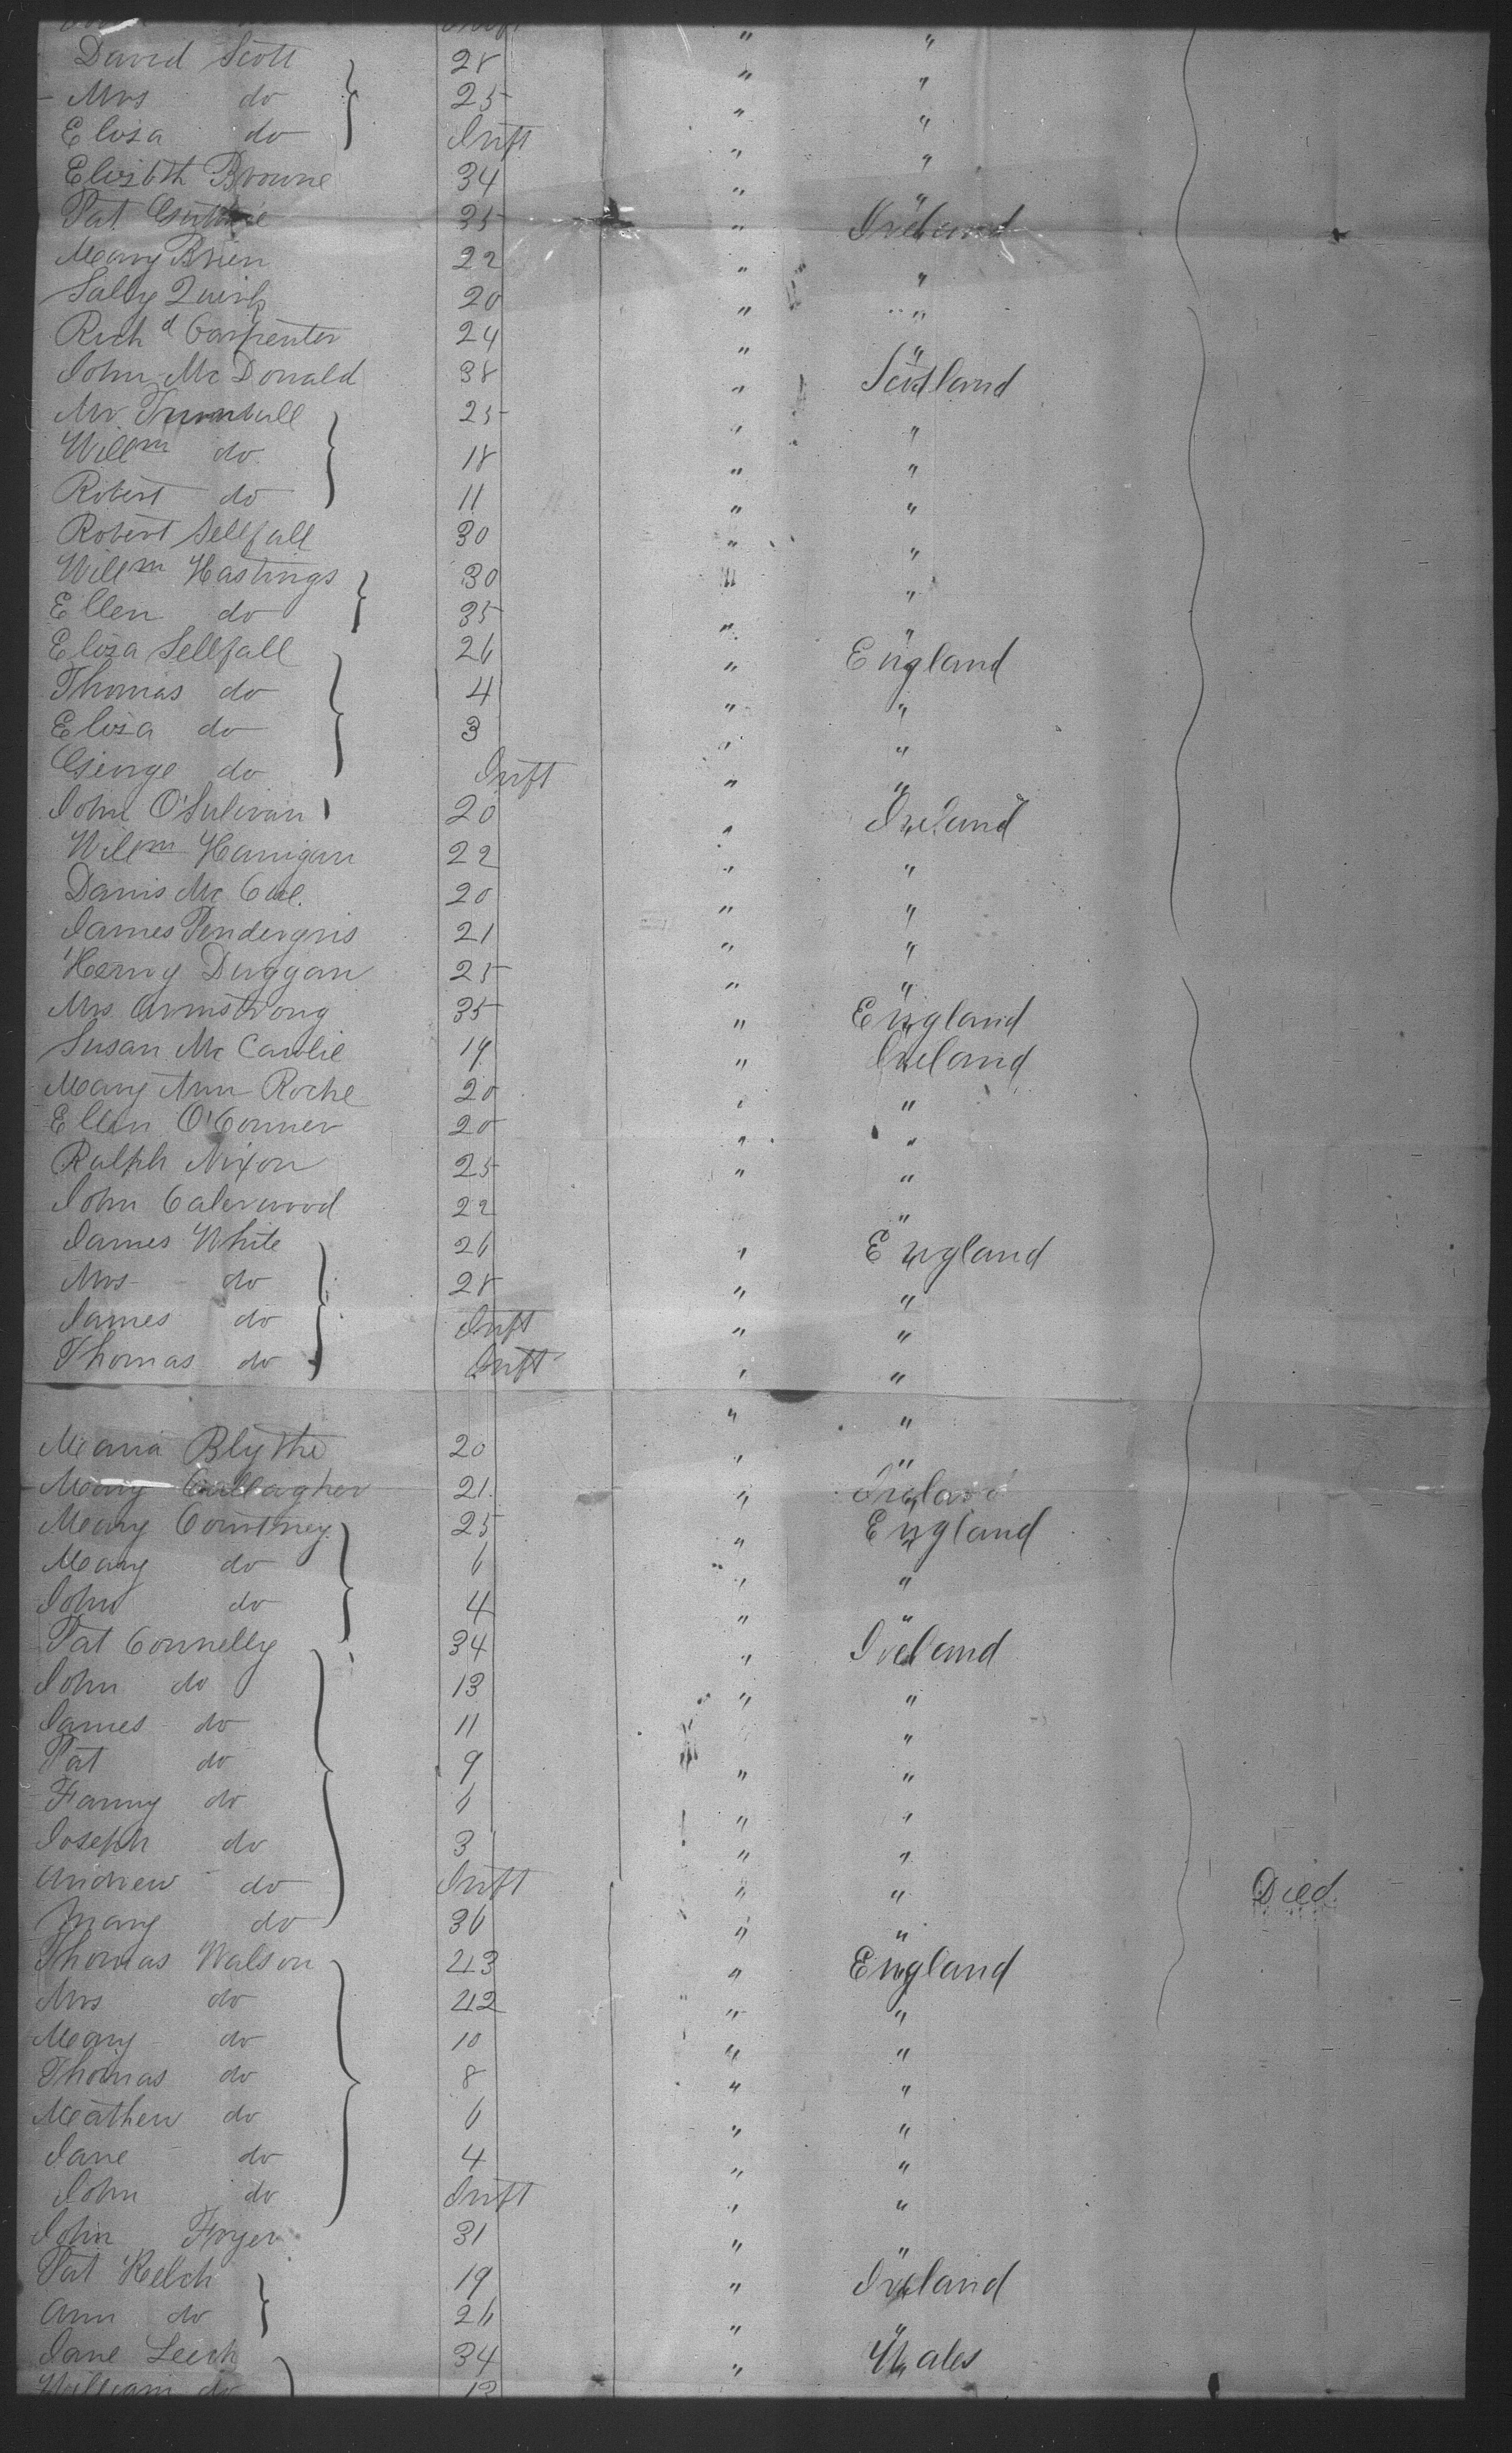 David Scott 28 " "
Mrs do 25 " "
Eliza do Inft " "
Elizbth Browne 34 " "
Pat Guthrie 35 " Ireland
Mary Brien 22 " "
Sally Quirk 20 " "
Richd Carpenter 24 " "
John McDonald 38 " Scotland
Mr Turnbull 25 " "
Willm do 18 " "
Robert do 11 " "
Robert Sellfall 30 " "
Willm Hastings 30 " "
Ellen do 35 " "
Eliza Sellfall 26 " England
Thomas do 4 " "
Eliza do 3 " "
George do Inft " "
John O'Sulivan 20 " Ireland
Willm Hanigan 22 " "
Danis Mc 20 " "
James Pendergris 21 " "
Henry Duggan 25 " "
Mrs Armstrong 35 " England
Susan Mc 19 " Ireland
Mary Ann Roche 20 " "
Ellen O'Conner 20 " "
Ralph Nixon 25 " "
John Calerwood 22 "
James White 26 " England
Mrs do 28 " "
James do Inft " "
Thomas do Inft " "
" "
Maria Blythe 20 " "
Mary Gallagher 21 " Ireland
Mary Courtney 25 " England
Mary do 6 " "
John do 4 " "
Pat Connelly 34 " Ireland
John do 13 " "
James do 11 "
Pat do 9 " "
Fanny do 6 " "
Joseph do 3 " "
Andrew do Inft " " Died
Mary do 36 " "
Thomas Walson 43 " England
Mrs do 42 " "
Mary do 10 " "
Thomas do 8 " "
Mathew do 6 " "
Jane do 4 " "
John do Inft " "
John Fryer 31 " "
Pat Kelch 19 " Ireland
Ann do 26 " "
Jane Leech 34 " Wales
William do 13